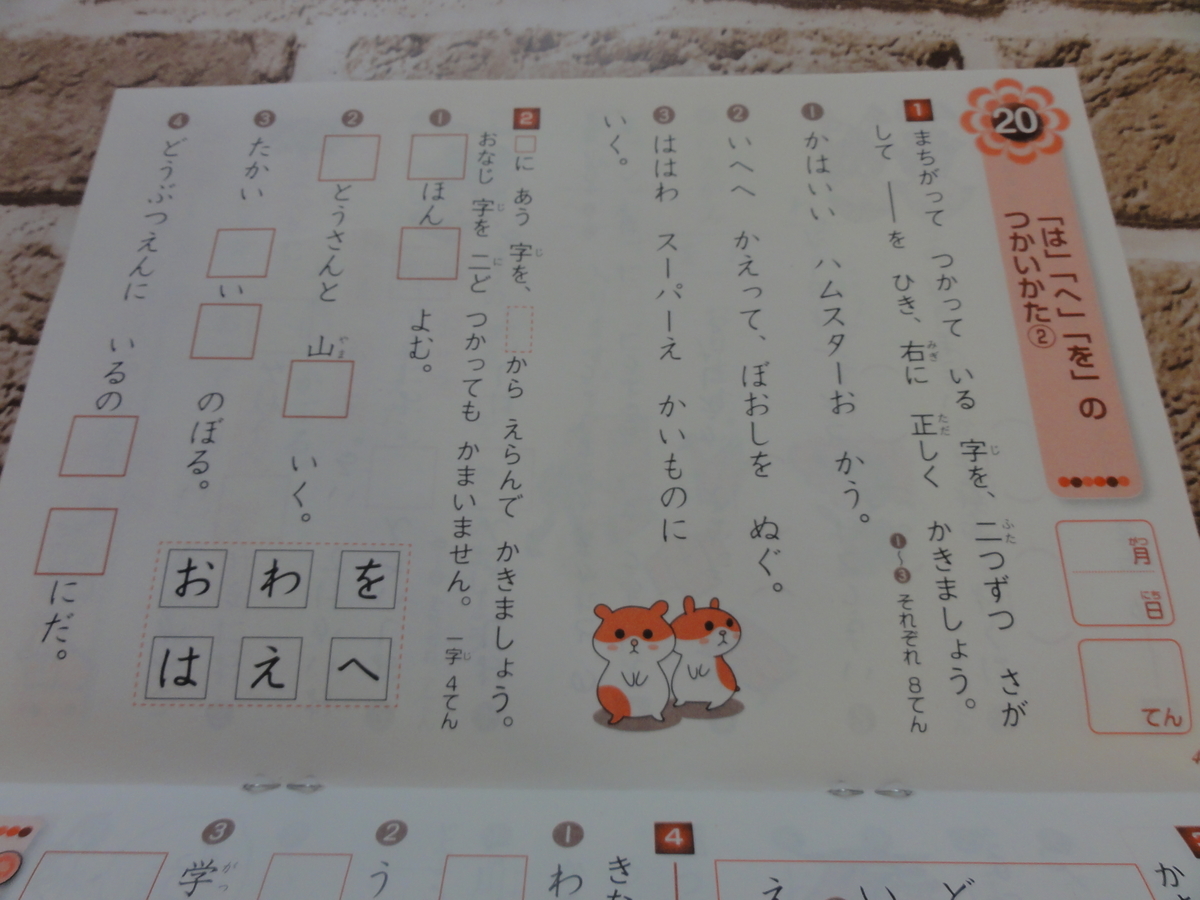 20
「は」「へ」「を」の
つかいかた②
月 日
がつ にち
てん
1 まちがって つかって いる 字を、二つずつ さが
じ ふた
して ――を ひき、右に 正しく かきましょう。
みぎ ただ
❶~❸ それぞれ 8てん
❶ かはいい ハムスターお かう。
❷ いへへ かえって、ぼおしを ぬぐ。
❸ ははわ スーパーえ かいものに
いく。
2 □に あう 字を、□から えらんで かきましょう。
じ
おなじ 字を 二ど つかっても かまいません。 一字 4てん
じ に じ
❶ □ほん□ よむ。
❷ □どうさんと 山□ いく。
やま
❸ たかい □い□ のぼる。
❹ どうぶつえんに いるの□□にだ。
を わ お
へ え は
4
❶ わ
❷ う
❸ 学
がっ